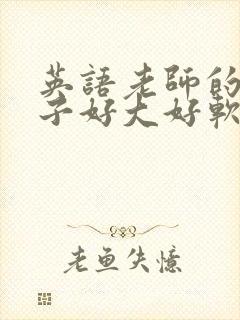 英語老師的
子好大好軟
老魚失憶